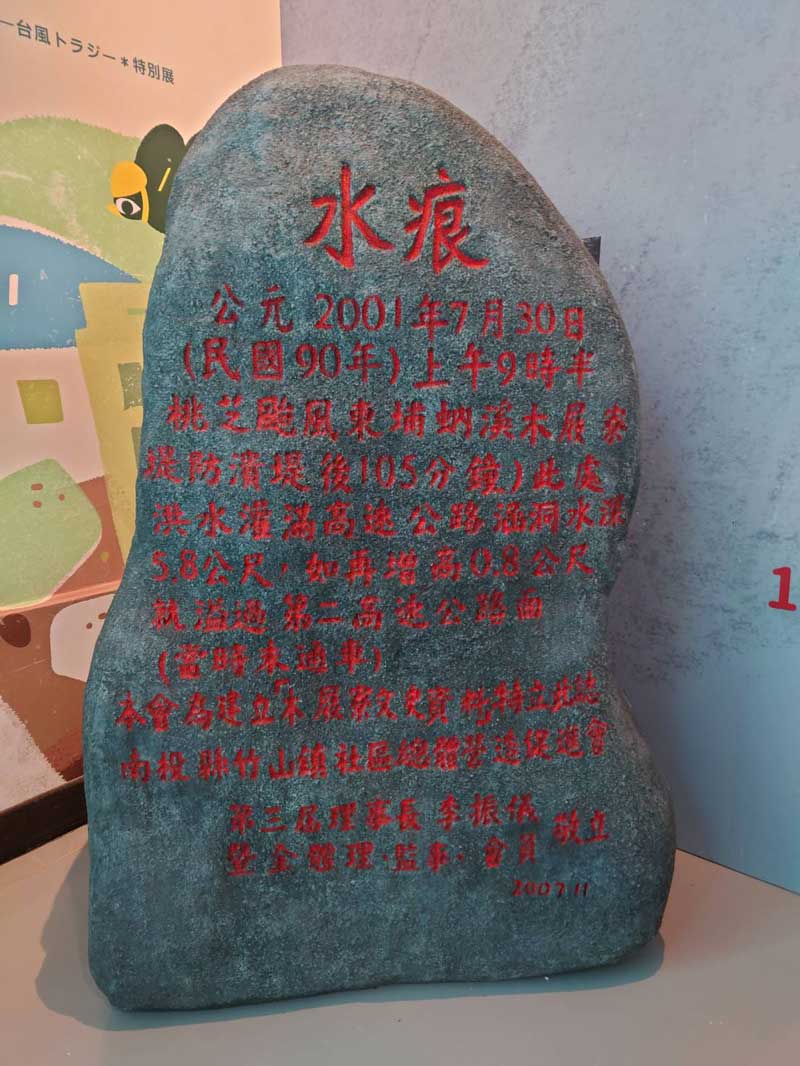 一台風トラジー＊特別展
水痕
公元 2001年7月30日
(民國90年)上午9時半
桃芝颱風東埔蚋溪木屐寮
堤防潰堤後105分鐘)此處
洪水灌滿高速公路涵洞水深
5.8公尺，如再增高0.8公尺
就溢過第二高速公路面
(當時未通車)
本會為建立木屐寮文史資料特立此誌
南投縣竹山鎮社區總體營造促進會
第三屆理事長 李振儀 敬立
暨全體理·監事·會員
2007.11
1